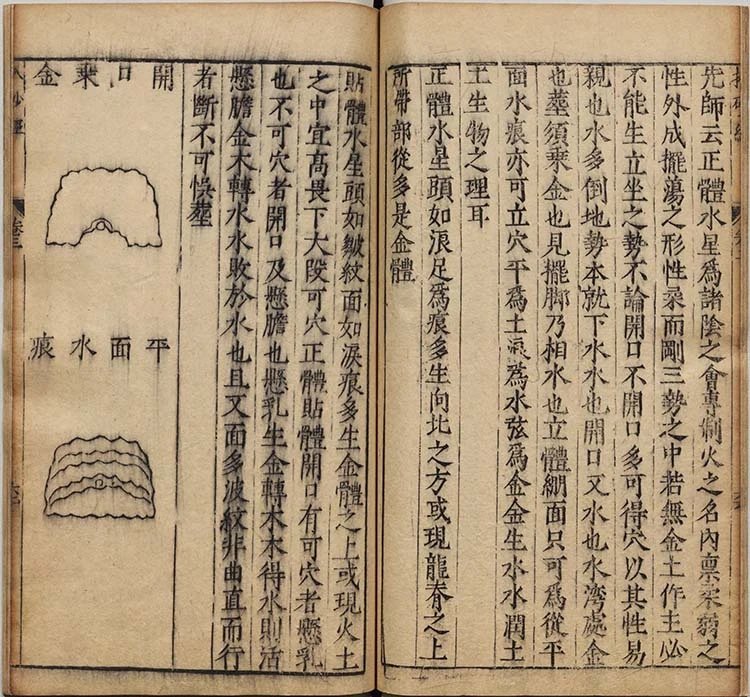 先師云正體水星為諸陰之會專制火之名內禀柔弱之
性外成擺蕩之形性柔而剛三勢之中若無金土作主必
不能生立坐之勢不論開口不開口多可得穴以其性易
親也水多倒地勢本就下水水也開口又水也水湾處金
也葬須乘金也見擺脚乃相水也立體綳面只可為從平
面水痕亦可立穴平為土痕為水弦為金金生水水潤土
土生物之理耳
正體水星頭如浪足為痕多生向北之方或現龍脊之上
所帶部從多是金體
貼體水星頭如皺紋面如淚痕多生金體之上或現火土
之中宜高畏下大段可穴正體貼體開口有可穴者懸乳
也不可穴者開口及懸膽也懸乳生金轉木木得水則活
懸膽金木轉水水敗於水也且又面多波紋非曲直而行
者斷不可悞葬
開口乘金
平面水痕
卷三